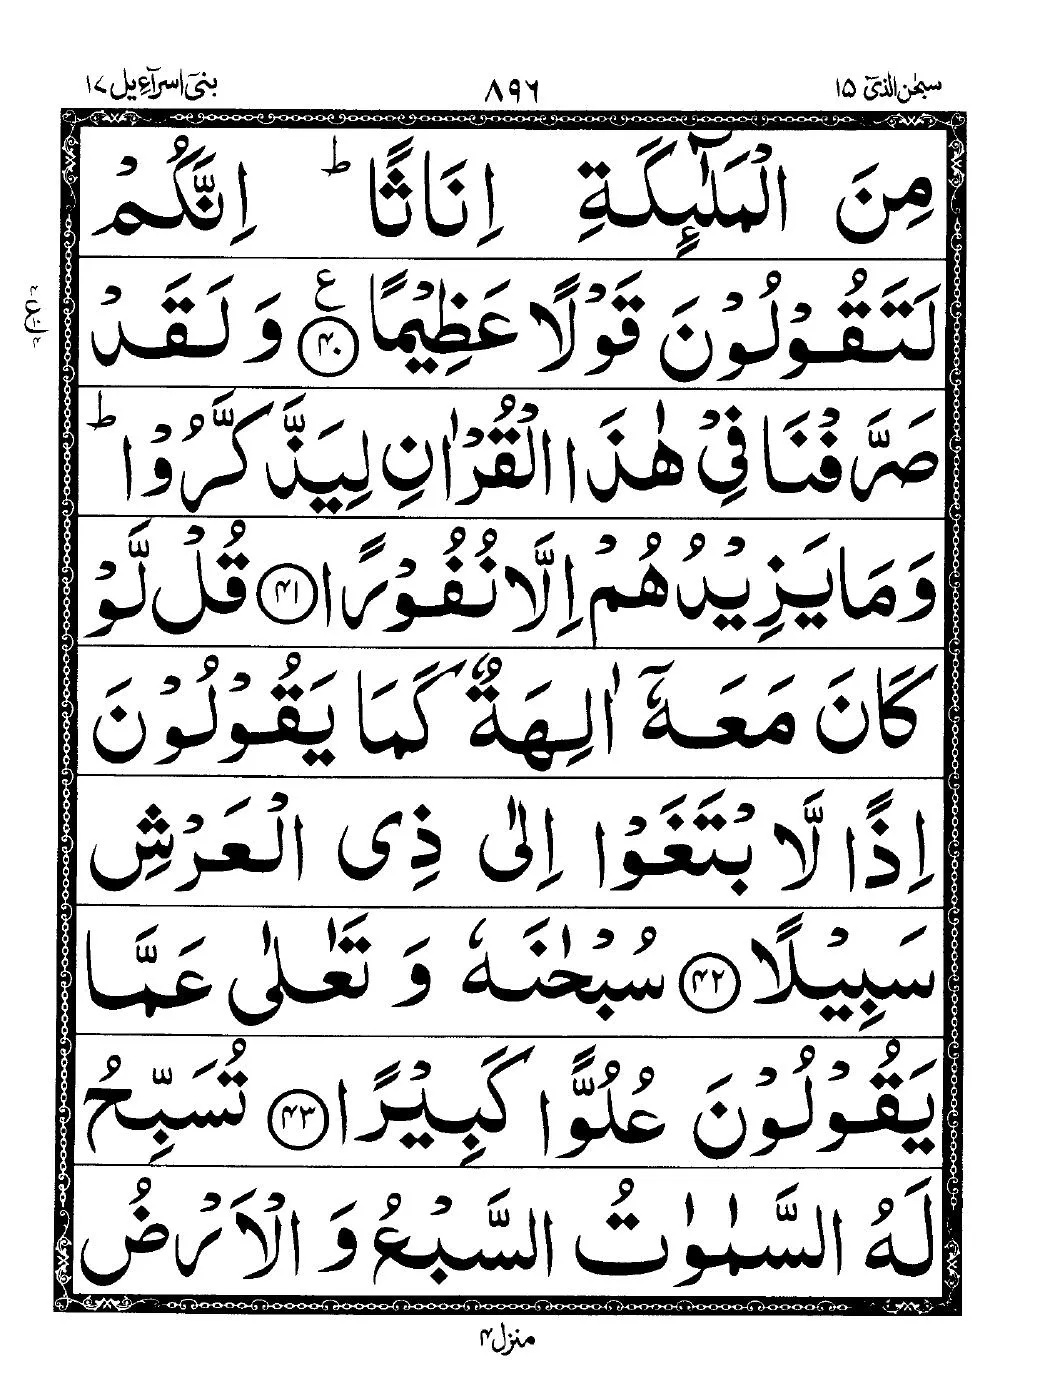 سبحٰن الذیٓ ۱۵
۸۹۶
بنیٓ اسرآءیل ۱۷
مِنَ الْمَلٰٓئِكَةِ اِنَاثًا ؕ اِنَّكُمْ
لَتَقُوْلُوْنَ قَوْلًا عَظِيْمًا ۴۰ ع وَ لَقَدْ
صَرَّفْنَا فِیْ هٰذَا الْقُرْاٰنِ لِيَذَّكَّرُوْا ؕ
وَ مَا يَزِيْدُهُمْ اِلَّا نُفُوْرًا ۴۱ قُلْ لَّوْ
كَانَ مَعَهٗۤ اٰلِهَةٌ كَمَا يَقُوْلُوْنَ
اِذًا لَّا بْتَغَوْا اِلٰى ذِی الْعَرْشِ
سَبِيْلًا ۴۲ سُبْحٰنَهٗ وَ تَعٰلٰى عَمَّا
يَقُوْلُوْنَ عُلُوًّا كَبِيْرًا ۴۳ تُسَبِّحُ
لَهُ السَّمٰوٰتُ السَّبْعُ وَ الْاَرْضُ
منزل ۴